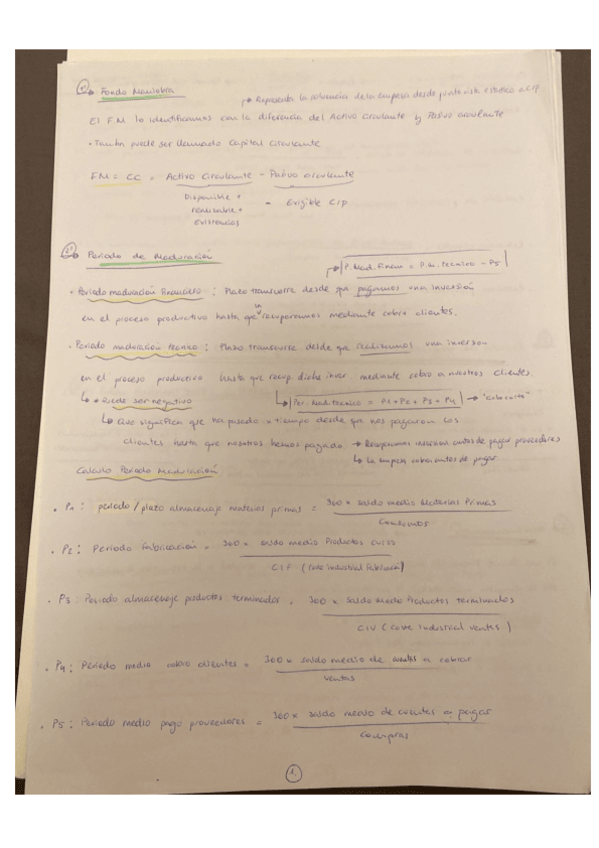 1º Fondo Maniobra
↳ Representa la solvencia de la empresa desde punto vista estático a C/P
El F.M lo identificamos con la diferencia del Activo Circulante y Pasivo circulante
• También puede ser llamado Capital Circulante
FM = CC = Activo Circulante - Pasivo circulante
Disponible + realizable + Existencias - Exigible C/p
2º Periodo de Maduración
P.Mad.financ = P.m.tecnico - P5
• Periodo maduración financiero : Plazo transcurre desde que pagamos una inversión
en el proceso productivo hasta que recuperamos mediante cobro clientes.
• Periodo maduración técnico : Plazo transcurre desde que realizamos una inversion
en el proceso productivo hasta que recup dicha inver. mediante cobro a nuestros clientes.
↳ • Puede ser negativo
↳ Per. Mad. tecnico = P1 + P2 + P3 + P4 →
↳ Que significa que ha pasado + tiempo desde que nos pagaron los
clientes, hasta que nosotros hemos pagado. → Recuperamos inversion antes de pagar proveedores
↳ La empresa cobra antes de pagar
Calculo Periodo Maduración
• P1 : periodo/plazo almacenaje materias primas = 360 x saldo medio Material Primas
Consumos
• P2 : Periodo Fabricación = 360 x saldo medio Productos curso
CIF (coste industrial fabricación)
• P3 : Periodo almacenaje productos terminados = 360 x saldo medio Productos terminados
CIV (coste industrial ventas)
• P4 : Periodo medio cobro clientes = 360 x saldo medio de cuentas a cobrar
Ventas
• P5 : Periodo medio pago proveedores = 360 x saldo medio de cuentas a pagar
Compras
1.